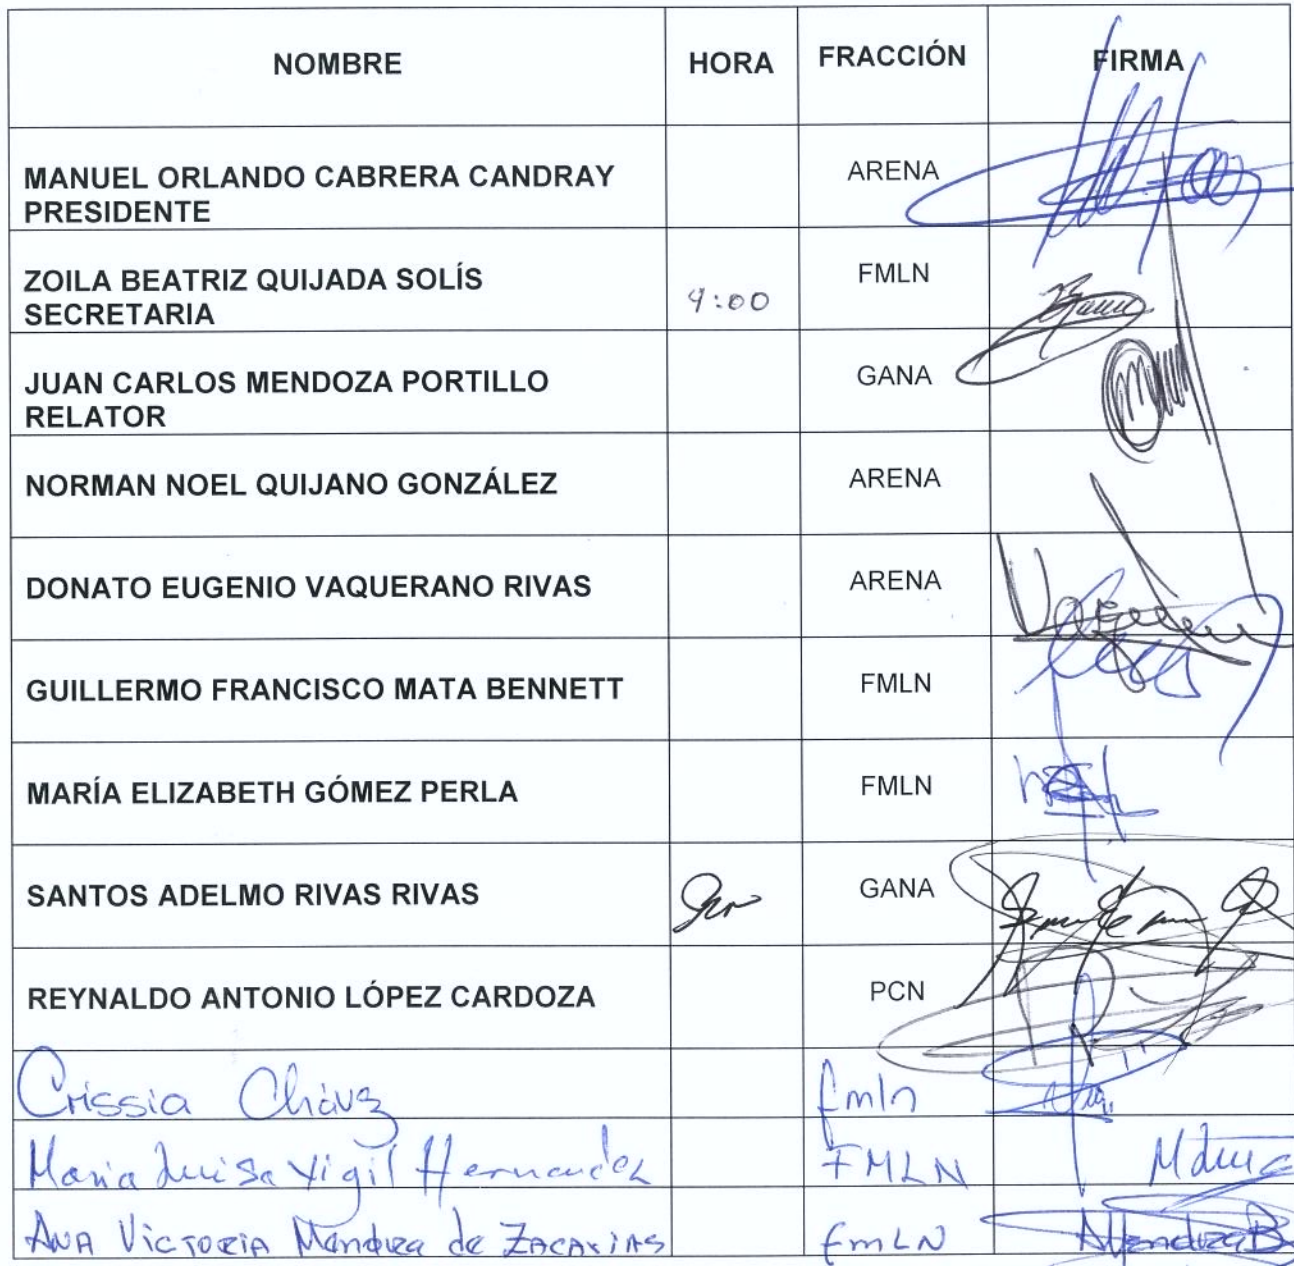 NOMBRE HORA FRACCIÓN FIRMA
MANUEL ORLANDO CABRERA CANDRAY ARENA
PRESIDENTE
ZOILA BEATRIZ QUIJADA SOLÍS FMLN
SECRETARIA 9:00
JUAN CARLOS MENDOZA PORTILLO GANA
RELATOR
NORMAN NOEL QUIJANO GONZÁLEZ ARENA
DONATO EUGENIO VAQUERANO RIVAS ARENA
GUILLERMO FRANCISCO MATA BENNETT FMLN
MARÍA ELIZABETH GÓMEZ PERLA FMLN
SANTOS ADELMO RIVAS RIVAS GANA
REYNALDO ANTONIO LÓPEZ CARDOZA PCN
Crissia Cháv3 fmln
Maria Luisa Vigil Hernandez FMLN
ANA VICTORIA Mendoza de ZACARIAS fmLN MendozaB